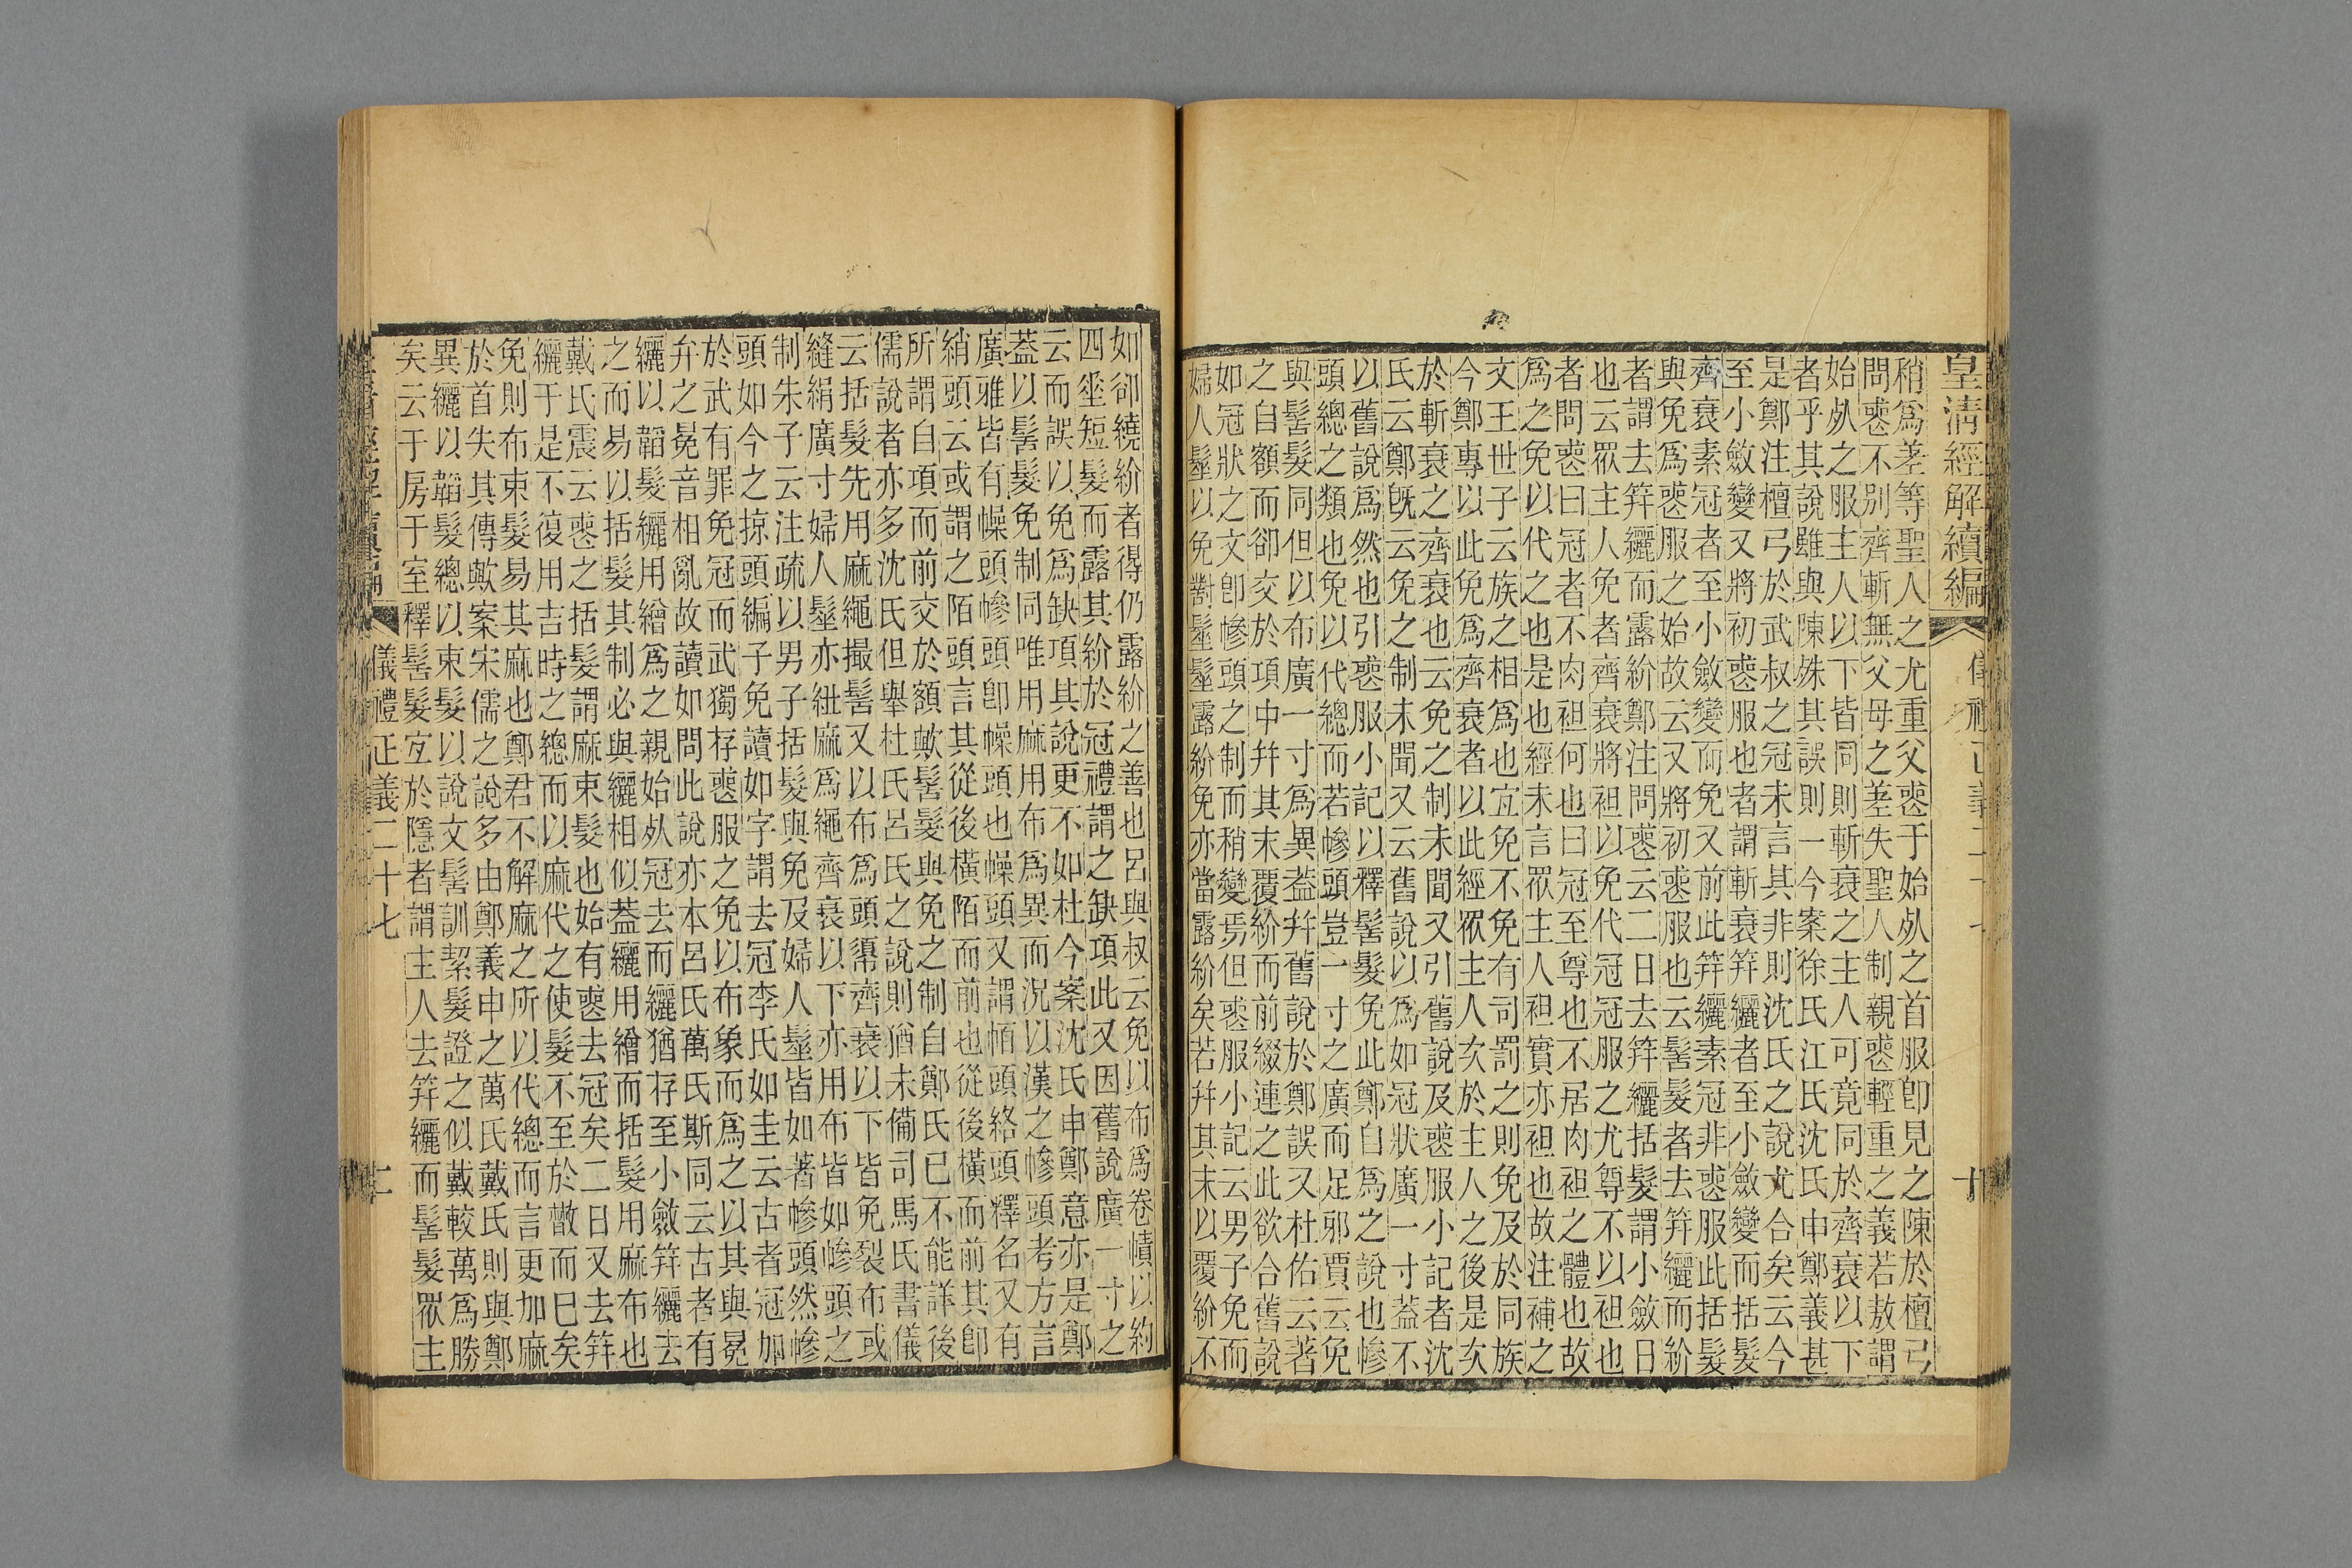 皇清經解續編　儀禮正義二十七　十
稍爲差等聖人之尤重父喪于始㱾之首服卽見之陳於檀弓
問喪不別齊斬無父母之差失聖人制親喪輕重之義若敖謂
始㱾之服主人以下皆同則斬衰之主人可竟同於齊衰以下
者乎其說雖與陳殊其誤則一今案徐氏江氏沈氏申鄭義甚
是鄭注檀弓於武叔之冠未言其非則沈氏之說尤合矣云今
至小斂變又將初喪服也者謂斬衰筓纚者至小斂變而括髮
齊衰素冠者至小斂變而免又前此筓纚素冠非喪服此括髮
與免爲喪服之始故云又將初喪服也云髻髮者去筓纚而紒
者謂去筓纚而露紒鄭注問喪云二日去筓纚括髮謂小斂日
也云眾主人免者齊衰將袒以免代冠冠服之尤尊不以袒也
者問喪曰冠者不肉袒何也曰冠至尊也不居肉袒之體也故
爲之免以代之也是也經未言眾主人袒實亦袒也故注補之
文王世子云族之相爲也宜免不免有司罰之則免及於同族
今鄭專以此免爲齊衰者以此經眾主人次於主人之後是次
於斬衰之齊衰也云免之制未聞又引舊說及喪服小記者沈
氏云鄭旣云免之制未聞又云舊說以爲如冠狀廣一寸葢不
以舊說爲然也引喪服小記以釋髻髮免此鄭自爲之說也幓
頭總之類也免以代總而若幓頭豈一寸之廣而足邪賈云免
與髻髮同但以布廣一寸爲異葢幷舊說於鄭誤又杜佑云著
之自額而卻交於項中幷其末覆紒而前綴連之此欲合舊說
如冠狀之文卽幓頭之制而稍變焉但喪服小記云男子免而
婦人髽以免對髽髽露紒免亦當露紒矣若幷其末以覆紒不
如卻繞紒者得仍露紒之善也呂與叔云免以布爲卷幘以約
四垂短髮而露其紒於冠禮謂之缺項此又因舊說廣一寸之
云而誤以免爲缺項其說更不如杜今案沈氏申鄭意亦是鄭
葢以髻髮免制同唯用麻用布爲異而況以漢之幓頭考方言
廣雅皆有幧頭幓頭卽幧頭也幧頭又謂帞頭絡頭釋名又有
綃頭云或謂之陌頭言其從後橫陌而前也從後橫而前其卽
所謂自項而前交於額歟髻髮與免之制自鄭氏已不能詳後
儒說者亦多沈氏但舉杜氏呂氏之說則猶未備司馬氏書儀
云括髮先用麻繩撮髻又以布爲頭𢄼齊衰以下皆免裂布或
縫絹廣寸婦人髽亦紐麻爲繩齊衰以下亦用布皆如幓頭之
制朱子云注疏以男子括髮與免及婦人髽皆如著幓頭然幓
頭如今之掠頭編子免讀如字謂去冠李氏如圭云古者冠加
於武有罪免冠而武獨存喪服之免以布象而爲之以其與冕
弁之冕音相亂故讀如問此說亦本呂氏萬氏斯同云古者有
纚以韜髮纚用繒爲之親始㱾冠去而纚猶存至小斂筓纚去
之而易以括髮其制必與纚相似葢纚用繒而括髮用麻布也
戴氏震云喪之括髮謂麻束髮也始有喪去冠矣二日又去筓
纚于是不復用吉時之總而以麻代之使髮不至於散而已矣
免則布束髮易其麻也鄭君不解麻之所以代總而言更加麻
於首失其傳歟案宋儒之說多由鄭義申之萬氏戴氏則與鄭
異纚以韜髮總以束髮以說文髻訓絜髮證之似戴較萬爲勝
矣云于房于室釋髻髮宜於隱者謂主人去筓纚而髻髮眾主
儀禮正義二十七